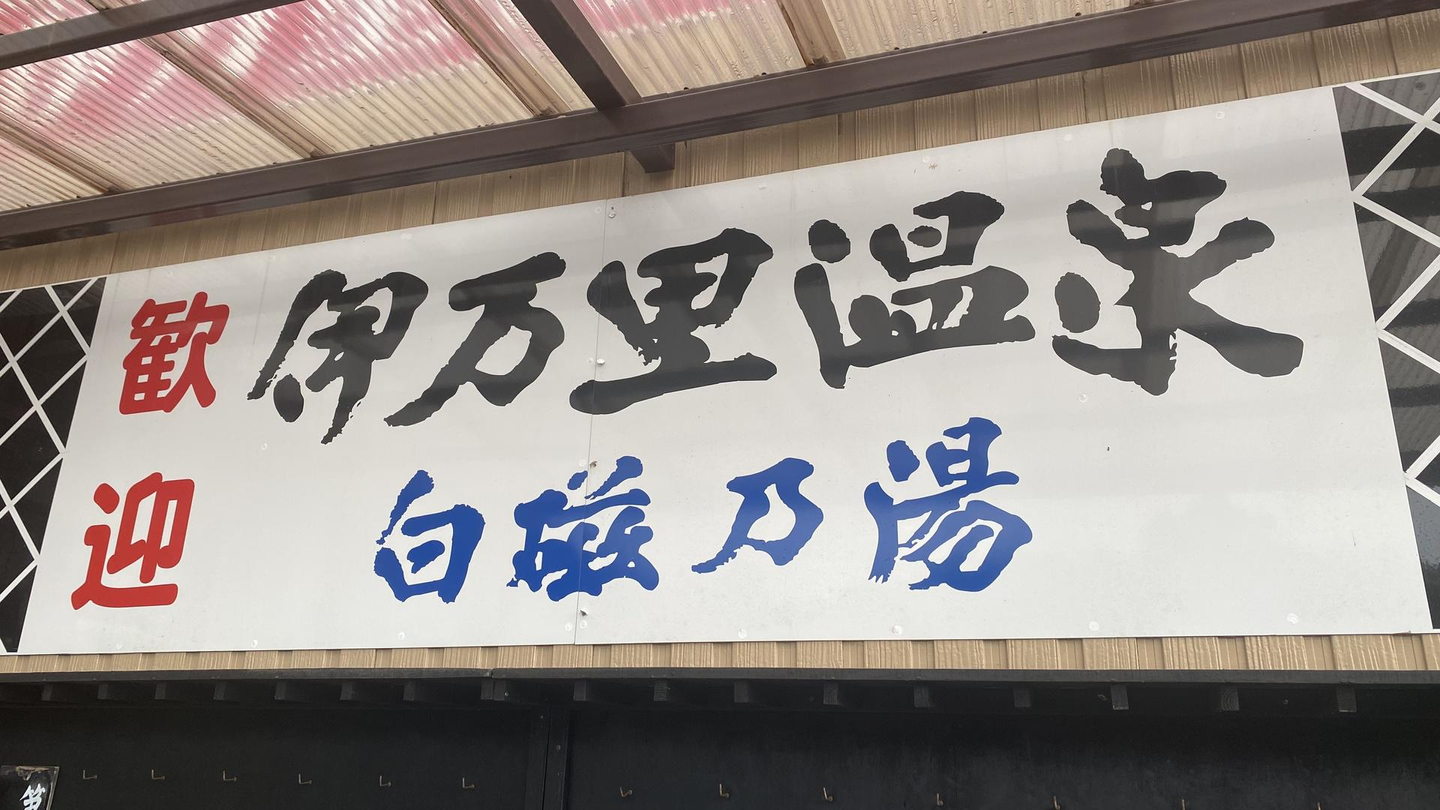 歓迎
伊万里温泉
白磁乃湯